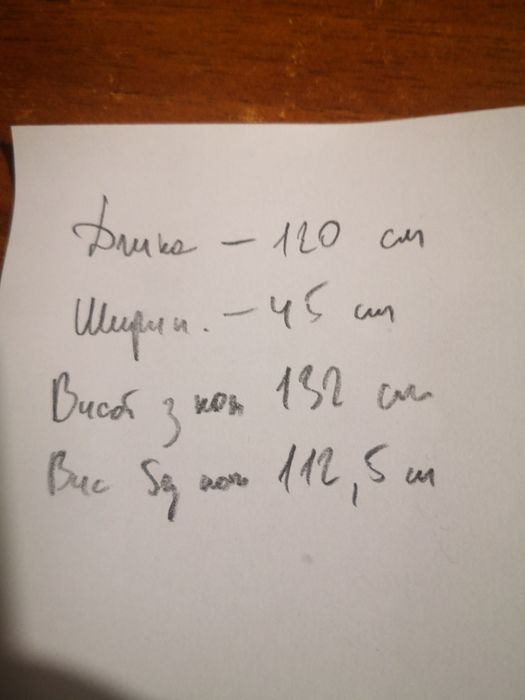 Длика – 120 см
Ширин. – 45 см
Висот з нож 132 см
Вис без нож 112,5 см